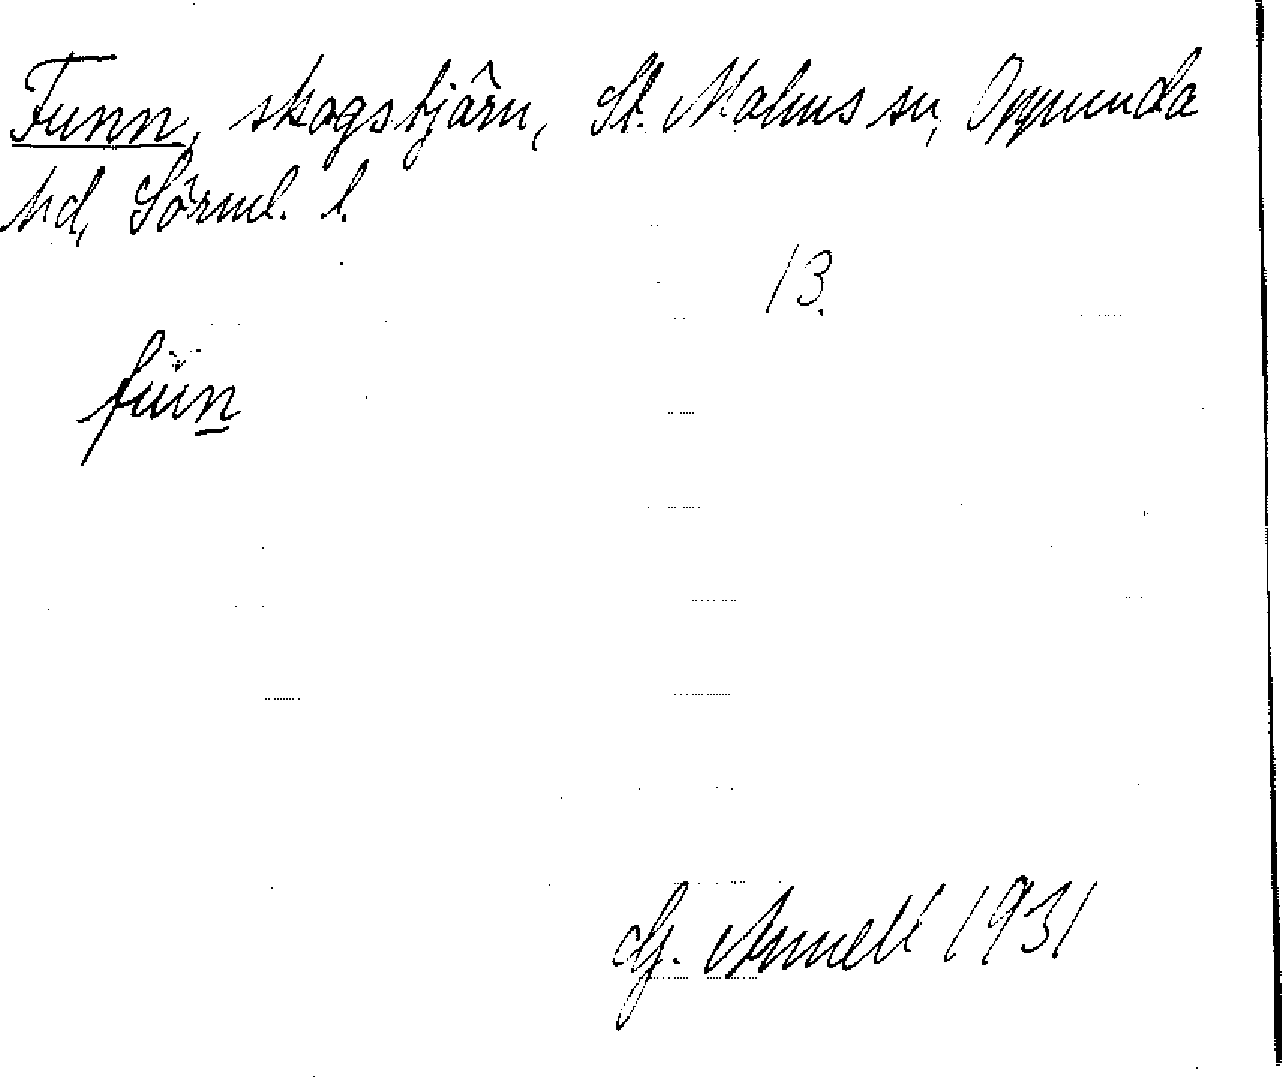 Funn, skogstjärn, St. Malms sn, Oppunda
hd, Sörml. l.
13.
fun̲
G. Arnell 1931